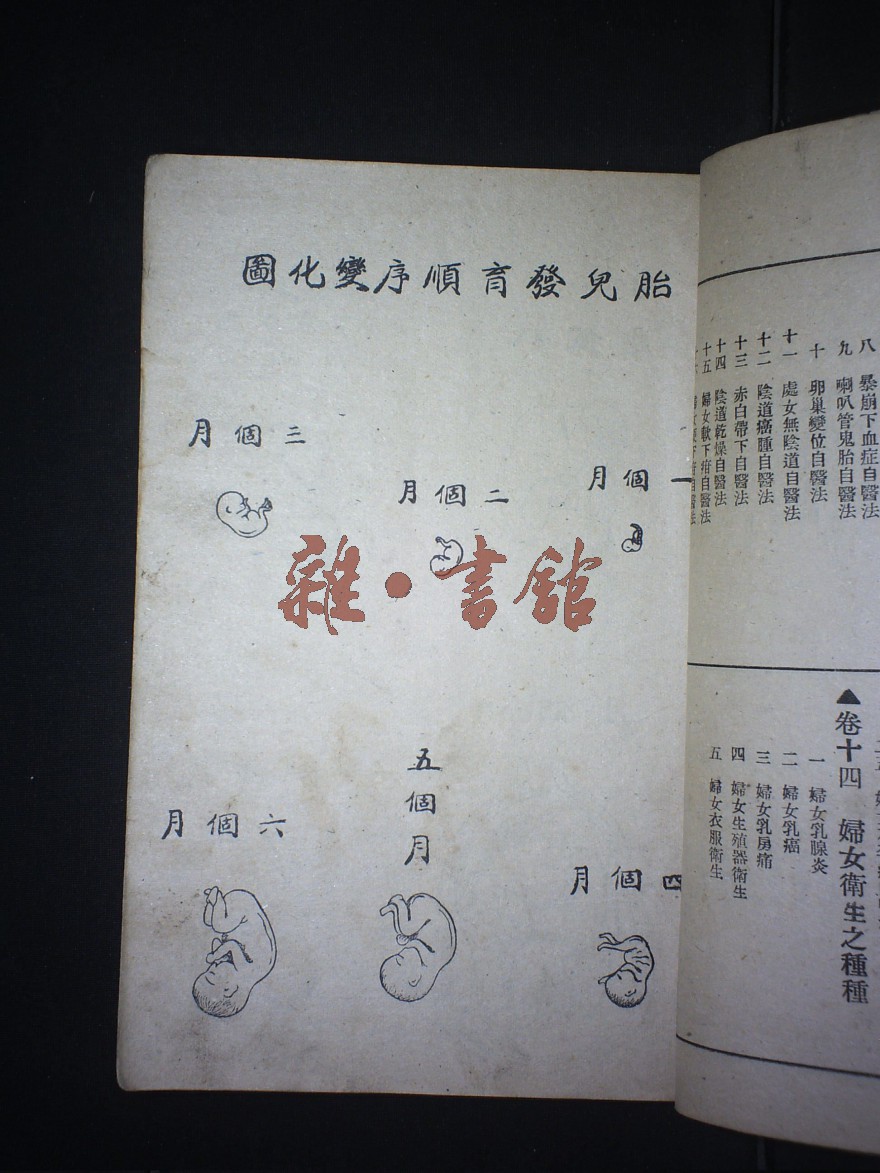 胎兒發育順序變化圖
一個月
二個月
三個月
四個月
五個月
六個月
雜·書館
八 暴崩下血症自醫法
九 喇叭管鬼胎自醫法
十 卵巢變位自醫法
十一 處女無陰道自醫法
十二 陰道癌腫自醫法
十三 赤白帶下自醫法
十四 陰道乾燥自醫法
十五 婦女軟下疳自醫法
▲卷十四 婦女衛生之種種
一 婦女乳腺炎
二 婦女乳癌
三 婦女乳房痛
四 婦女生殖器衛生
五 婦女衣服衛生